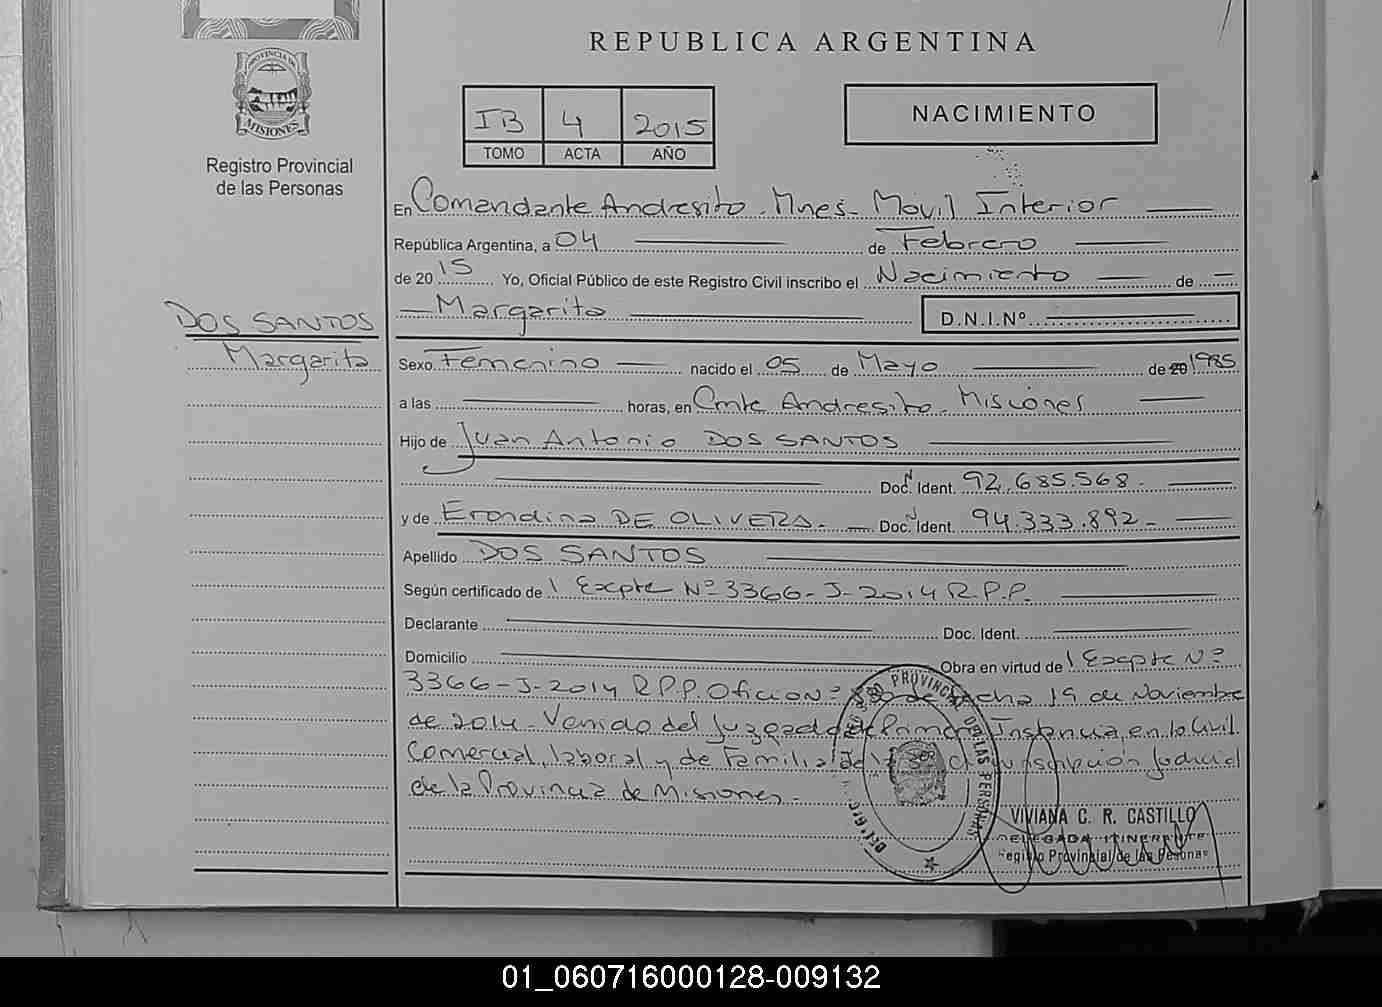 REPUBLICA ARGENTINA
PROVINCIA DE MISIONES
Registro Provincial
de las Personas
IB 4 2015
TOMO ACTA AÑO
NACIMIENTO
En Comandante Andresito. Mnes- Móvil Interior
República Argentina, a 04 de Febrero
de 2015 Yo, Oficial Público de este Registro Civil inscribo el Nacimiento de
Margarita D.N.I.Nº
DOS SANTOS
Margarita
Sexo Femenino nacido el 05 de Mayo de 20 1985
a las horas, en Cmte Andresito. Misiones
Hijo de Juan Antonio DOS SANTOS
Doc. Ident. 92.685.568.
y de Erondina DE OLIVERA. Doc. Ident. 94.333.892-
Apellido DOS SANTOS
Según certificado de 1 Expte Nº 3366-J-2014 R.P.P.
Declarante Doc. Ident.
Domicilio Obra en virtud de 1 Expte Nº
3366-J-2014 R.P.P. Oficio Nº de fecha 19 de Noviembre
de 2014. Venido del Juzgado de Primera Instancia en lo Civil
Comercial, laboral y de Familia de la Circunscripción Judicial
de la Provincia de Misiones.-
VIVIANA C. R. CASTILLO
DELEGADA ITINERANTE
Registro Provincial de las Personas
01_060716000128-009132